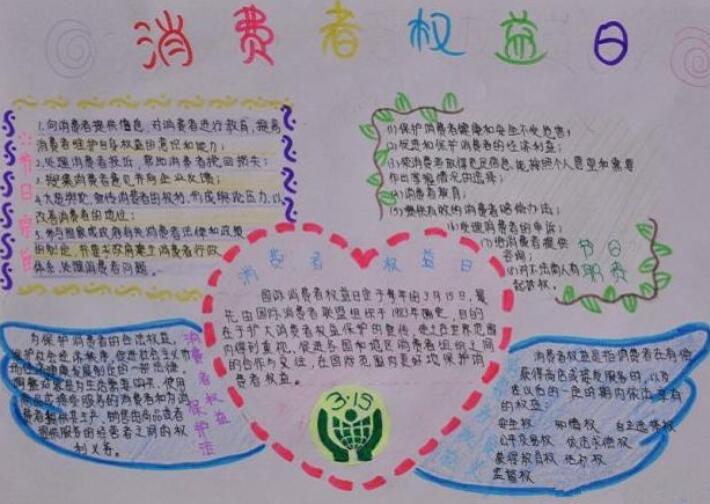 消费者权益日
1.向消费者提供信息,对消费者进行教育,提高
消费者维护自身权益的意识和能力;
2.处理消费者投诉,帮助消费者挽回损失;
3.搜集消费者意见并向企业反馈;
4.大造舆论,宣传消费者的权利,形成舆论压力,以
改善消费者的地位;
5.参与国家或政府有关消费者法律和政策
的制定,并要求政府建立消费者行政
体系,处理消费者问题。
节日宗旨
(1)保护消费者健康和安全不受危害;
(2)促进和保护消费者的经济利益;
(3)使消费者取得充足信息,能按照个人愿望和需要
作出掌握情况的选择;
(4)消费者教育;
(5)提供有效的消费者赔偿办法;
(6)处理消费者的申诉;
(7)给消费者提供
咨询;
(8)对不法商人有
起诉权。
节日
职责
消费者权益日
国际消费者权益日定于每年的3月15日,最
先由国际消费者联盟组织于1983年确定,目的
在于扩大消费者权益保护的宣传,使之在世界范围
内得到重视,促进各国和地区消费者组织之间
的合作与交往,在国际范围内更好地保护消
费者权益。
3·15
为保护消费者的合法权益,
保护社会经济秩序,促进社会主义市
场经济健康发展制定的一部法律。
调整对象是为生活需要购买、使用
商品或接受服务的消费者和为消
费者提供其生产、销售的商品或者
提供服务的经营者之间的权
利义务。
消费者权益保护法
消费者权益是指消费者在有偿
获得商品或接受服务时,以及
在以后的一定时期内依法享有
的权益:
安全权 知情权 自主选择权
公平交易权 依法求偿权
获得教育权 结社权
监督权